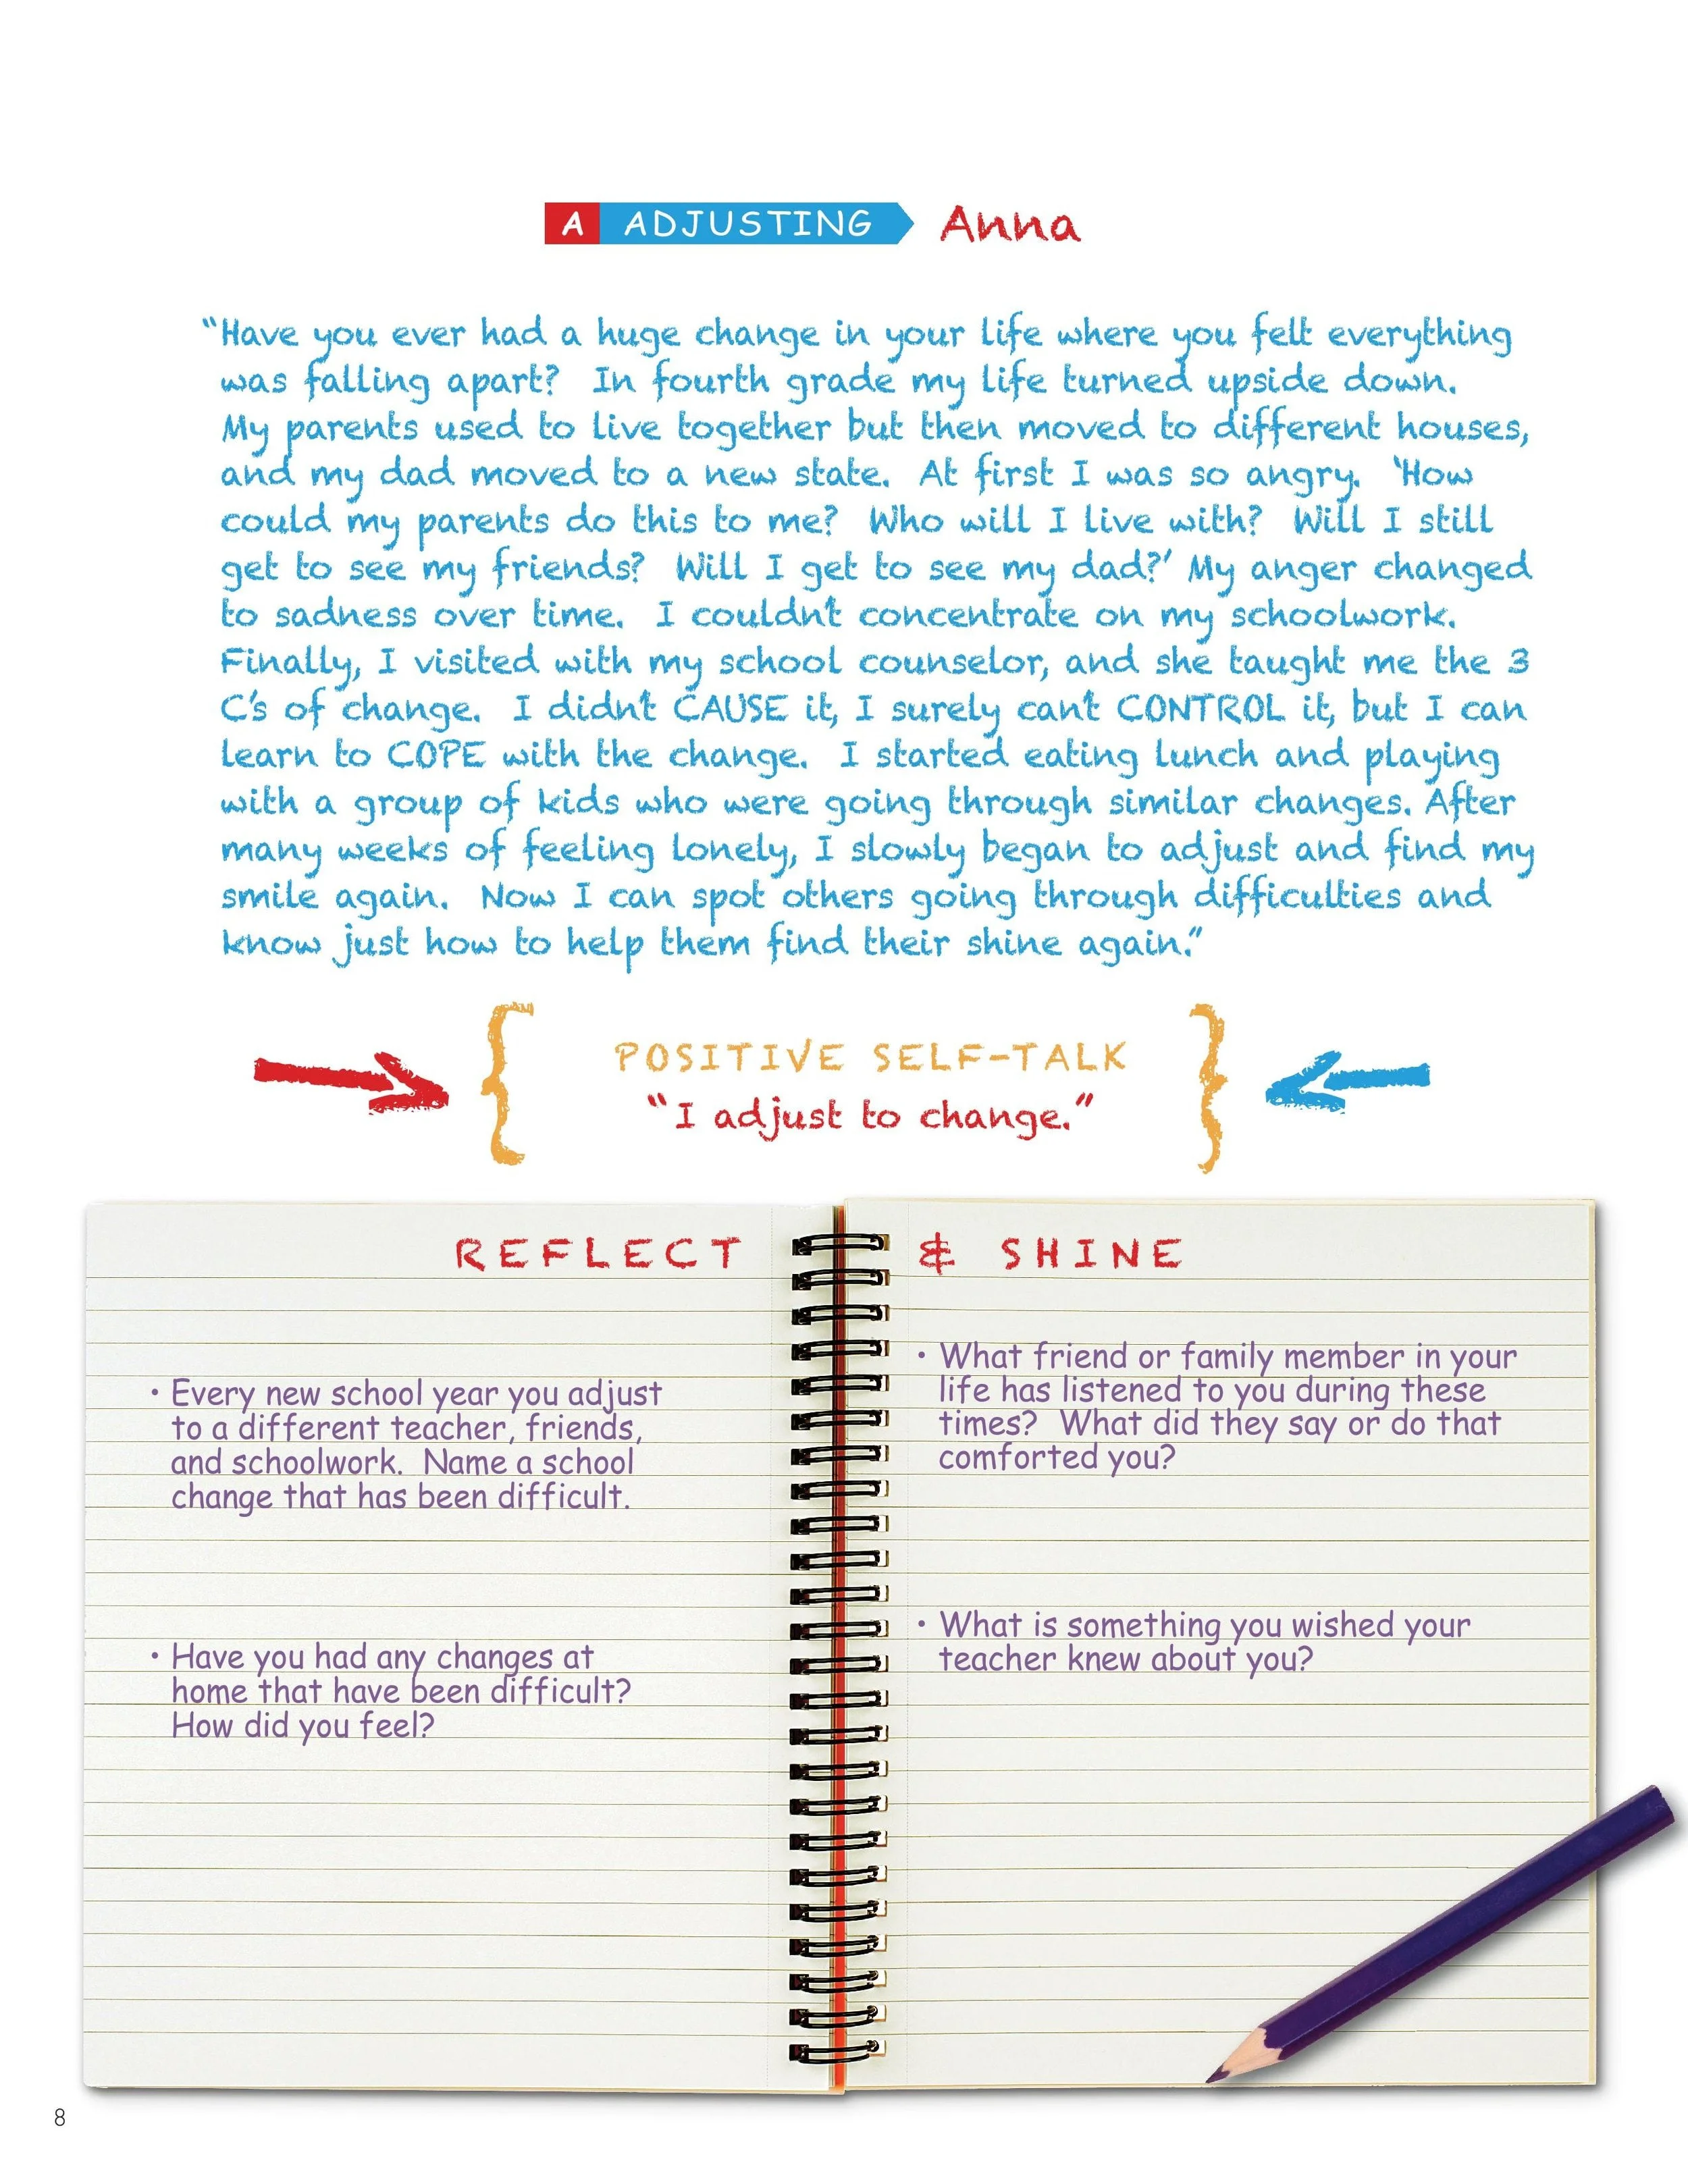 A ADJUSTING Anna
“Have you ever had a huge change in your life where you felt everything
was falling apart? In fourth grade my life turned upside down.
My parents used to live together but then moved to different houses,
and my dad moved to a new state. At first I was so angry. ‘How
could my parents do this to me? Who will I live with? Will I still
get to see my friends? Will I get to see my dad?’ My anger changed
to sadness over time. I couldn’t concentrate on my schoolwork.
Finally, I visited with my school counselor, and she taught me the 3
C’s of change. I didn’t CAUSE it, I surely can’t CONTROL it, but I can
learn to COPE with the change. I started eating lunch and playing
with a group of kids who were going through similar changes. After
many weeks of feeling lonely, I slowly began to adjust and find my
smile again. Now I can spot others going through difficulties and
know just how to help them find their shine again.”
POSITIVE SELF-TALK
“I adjust to change.”
REFLECT & SHINE
• Every new school year you adjust
to a different teacher, friends,
and schoolwork. Name a school
change that has been difficult.
• Have you had any changes at
home that have been difficult?
How did you feel?
• What friend or family member in your
life has listened to you during these
times? What did they say or do that
comforted you?
• What is something you wished your
teacher knew about you?
8